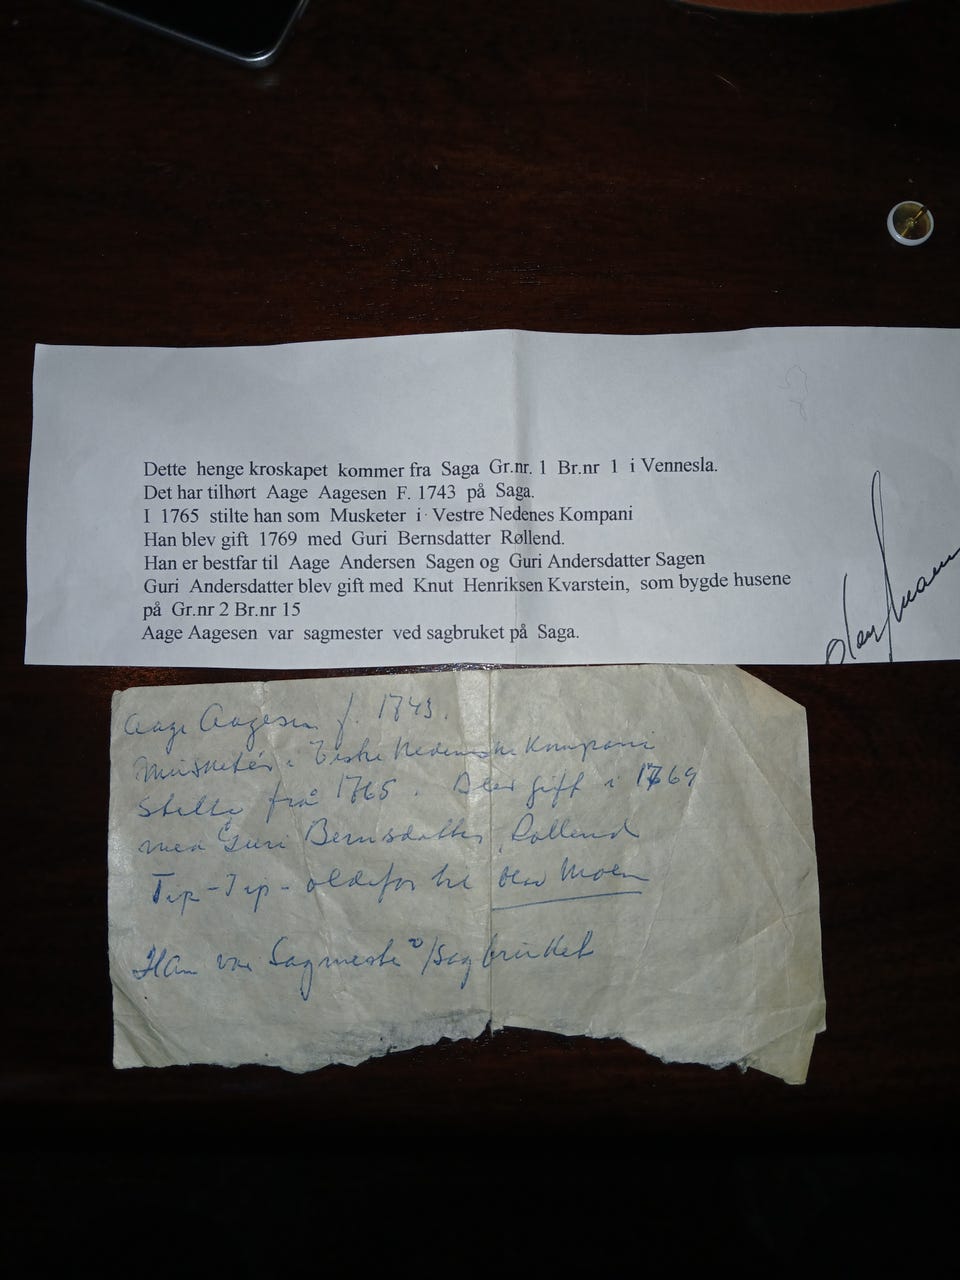 Dette henge kroskapet kommer fra Saga Gr.nr. 1 Br.nr 1 i Vennesla.
Det har tilhørt Aage Aagesen F. 1743 på Saga.
I 1765 stilte han som Musketer i Vestre Nedenes Kompani
Han blev gift 1769 med Guri Bernsdatter Røllend.
Han er bestfar til Aage Andersen Sagen og Guri Andersdatter Sagen
Guri Andersdatter blev gift med Knut Henriksen Kvarstein, som bygde husene
på Gr.nr 2 Br.nr 15
Aage Aagesen var sagmester ved sagbruket på Saga.
Aage Aagesen f. 1743.
Musketér i Kompani
Stilte frå 1765. Blev gift i 1769
med Guri Bernsdatter, Røllend
Tip-Tip-oldefar til Olav Moen
Han var Sagmester